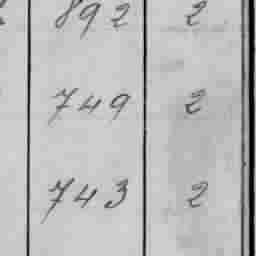 892 2
749 2
743 2